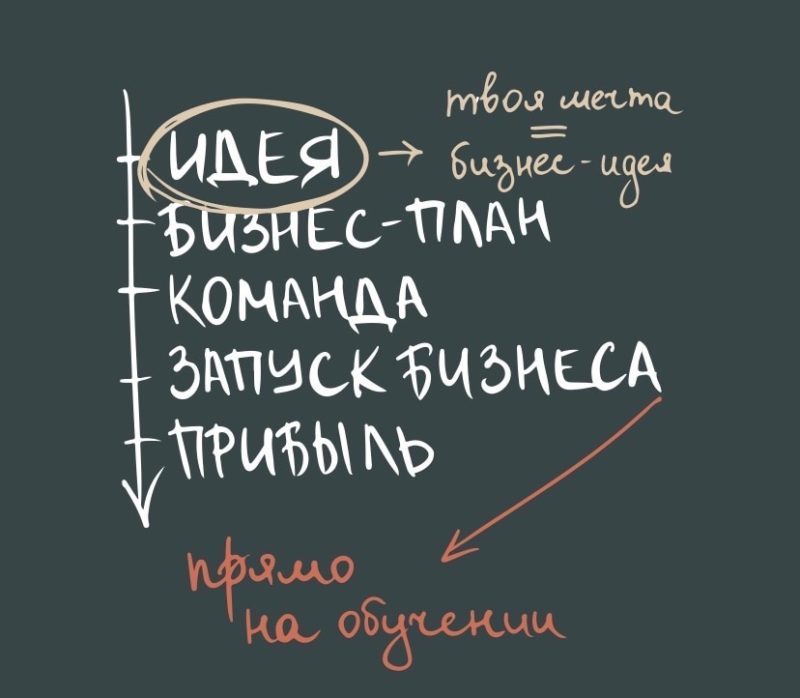 ИДЕЯ → твоя мечта
=
бизнес-идея
БИЗНЕС-ПЛАН
КОМАНДА
ЗАПУСК БИЗНЕСА
ПРИБЫЛЬ
прямо
на обучении